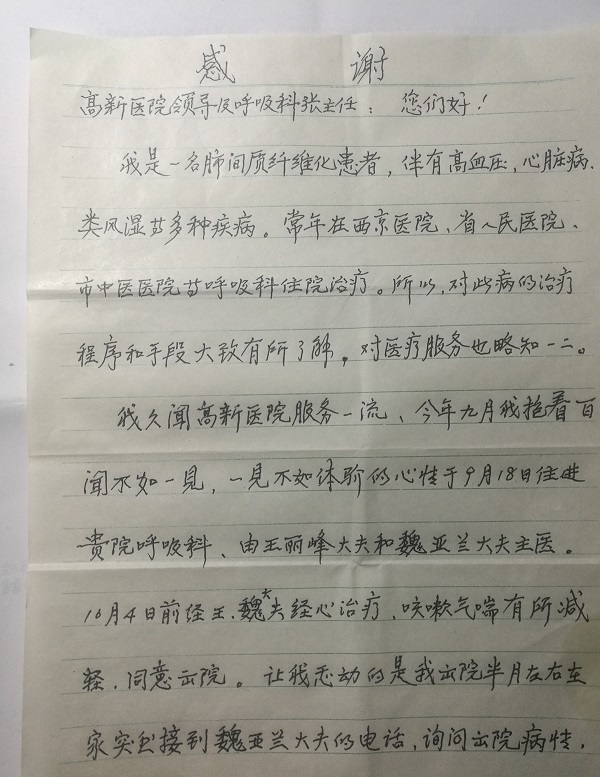 感 谢
高新医院领导及呼吸科张主任：您们好！
我是一名肺间质纤维化患者，伴有高血压，心脏病、
类风湿等多种疾病。常年在西京医院、省人民医院、
市中医医院等呼吸科住院治疗。所以，对此病的治疗
程序和手段大致有所了解，对医疗服务也略知一二。
我久闻高新医院服务一流、今年九月我抱着百
闻不如一见，一见不如体验的心性于9月18日住进
贵院呼吸科、由王丽峰大夫和魏亚兰大夫主医。
10月4日前经王、魏大夫经心治疗，咳嗽气喘有所减
轻，同意出院。让我感动的是我出院半月左右在
家突然接到魏亚兰大夫的电话，询问出院病情，